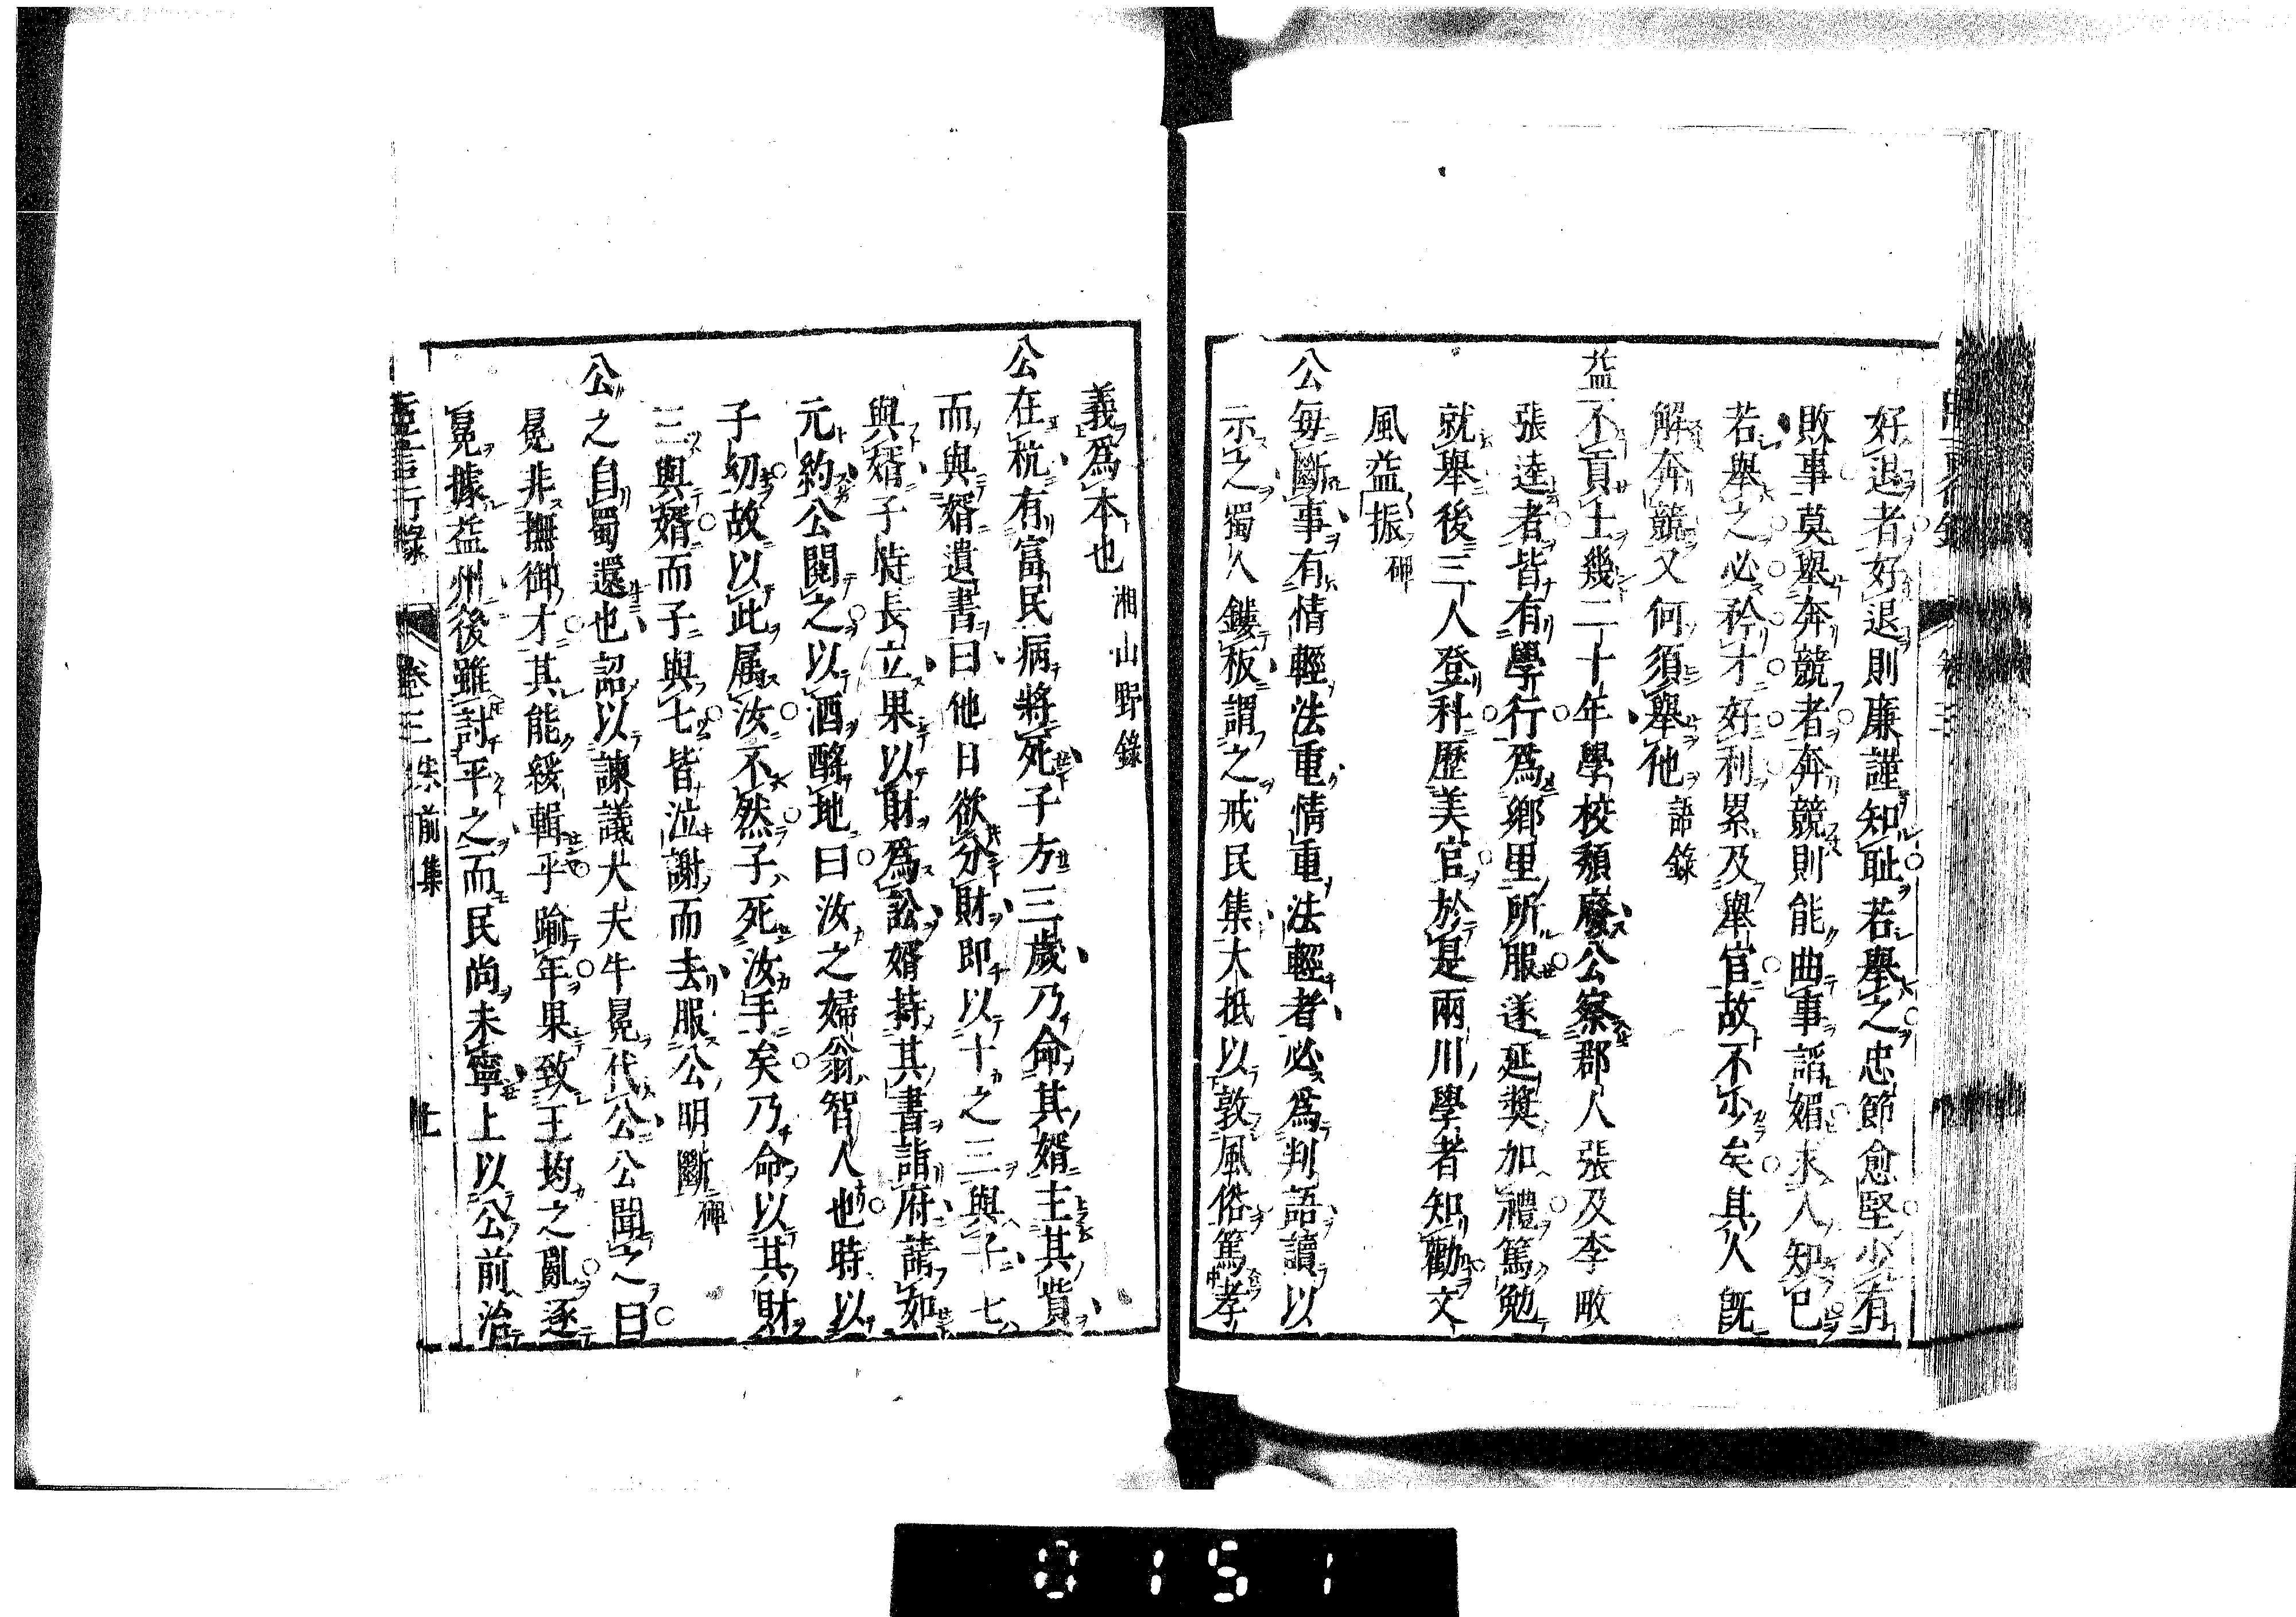 好退者好退則廉謹知耻若舉之忠節愈堅少有
敗事莫舉奔競者奔競則能曲事謟媚求人知己
若舉之必矜才好利累及舉官故不少矣其人既
解奔競又何須舉他語錄
益不貢士幾二十年學校頹廢公察郡人張及李畋
張逵者皆有學行爲鄉里所服遂延奬加禮篤勉
就舉後三人登科歷美官於是兩川學者知勸文
風益振碑
公每斷事有情輕法重情重法輕者必爲判語讀以
示之蜀人鏤板謂之戒民集大抵以敦風俗篤孝
義爲本也湘山野錄
公在杭有富民病將死子方三歲乃命其婿主其貲
而與婿遺書曰他日欲分財即以十之三與子七
與婿子時長立果以財爲訟婿持其書詣府請如
元約公閱之以酒酹地曰汝之婦翁智人也時以
子幼故以此属汝不然子死汝手矣乃命以其財
三與婿而子與七皆泣謝而去服公明斷碑
公之自蜀還也詔以諫議大夫牛冕代公公聞之曰
冕非撫御才其能綏輯乎踰年果致王均之亂逐
冕據益州後雖討平之而民尚未寧上以公前治
言行錄 卷三 朱前集